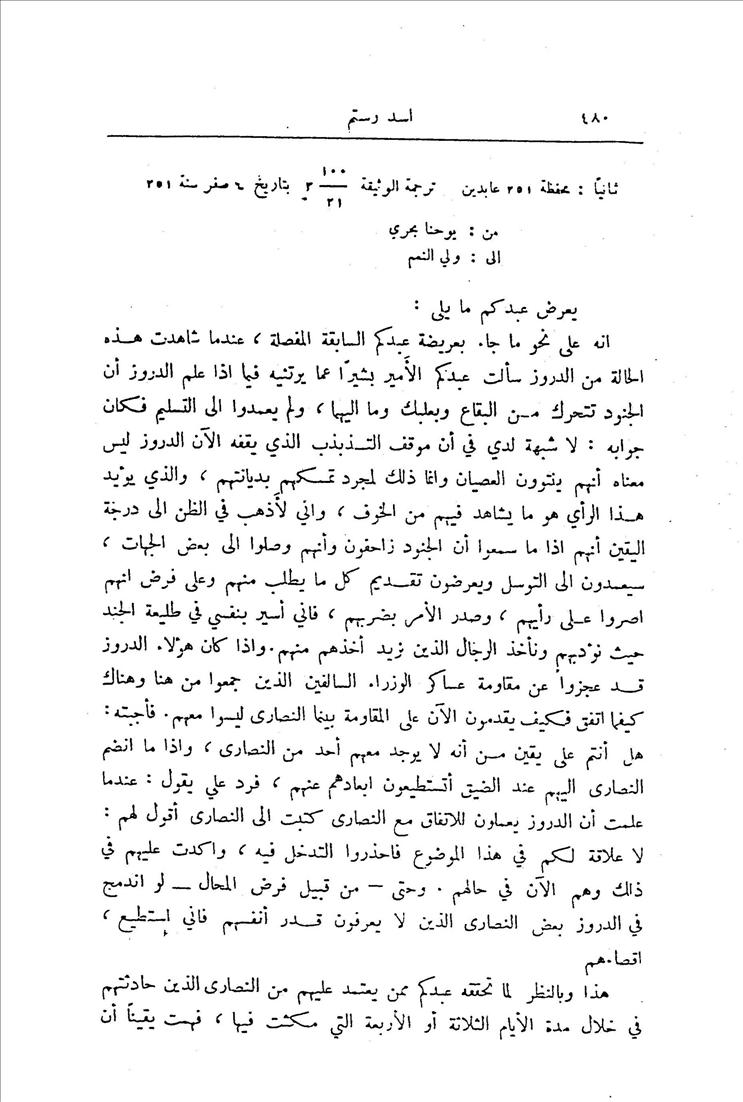 ٤٨٠ اسد رستم
ثانياً : محفظة ٢٥١ عابدين ترجمة الوثيقة ١٠٠/٢١ ٣ بتاريخ ٦ صفر سنة ٢٥١
من : يوحنا بحري
الى : ولي النعم
يعرض عبدكم ما يلي :
انه على نحو ما جاء بعريضة عبدكم السابقة المفصلة ، عندما شاهدت هذه
الحالة من الدروز سألت عبدكم الأمير بشيراً عما يرتئيه فيما اذا علم الدروز أن
الجنود تتحرك من البقاع وبعلبك وما اليها ، ولم يعمدوا الى التسليم فكان
جوابه : لا شبهة لدي في أن موقف التذبذب الذي يقفه الآن الدروز ليس
معناه أنهم ينتوون العصيان وانما ذلك لمجرد تمسكهم بديانتهم ، والذي يؤيد
هذا الرأي هو ما يشاهد فيهم من الخوف ، واني لأذهب في الظن الى درجة
اليقين أنهم اذا ما سمعوا أن الجنود زاحفون وأنهم وصلوا الى بعض الجهات ،
سيعمدون الى التوسل ويعرضون تقديم كل ما يطلب منهم وعلى فرض انهم
اصروا على رأيهم ، وصدر الأمر بضربهم ، فاني أسير بنفسي في طليعة الجند
حيث نؤدبهم ونأخذ الرجال الذين نريد أخذهم منهم . واذا كان هؤلاء الدروز
قد عجزوا عن مقاومة عساكر الوزراء السالفين الذين جمعوا من هنا وهناك
كيفما اتفق فكيف يقدمون الآن على المقاومة بينما النصارى ليسوا معهم . فأجبته :
هل أنتم على يقين من أنه لا يوجد معهم أحد من النصارى ، واذا ما انضم
النصارى اليهم عند الضيق أتستطيعون ابعادهم عنهم ، فرد علي يقول : عندما
علمت أن الدروز يعملون للاتفاق مع النصارى كتبت الى النصارى أقول لهم :
لا علاقة لكم في هذا الموضوع فاحذروا التدخل فيه ، واكدت عليهم في
ذلك وهم الآن في حالهم . وحتى – من قبيل فرض المحال – لو اندمج
في الدروز بعض النصارى الذين لا يعرفون قدر أنفسهم فاني إستطيع ،
اقصاءهم
هذا وبالنظر لما تحققه عبدكم ممن يعتمد عليهم من النصارى الذين حادثتهم
في خلال مدة الأيام الثلاثة أو الأربعة التي مكثت فيها ، فهمت يقيناً أن